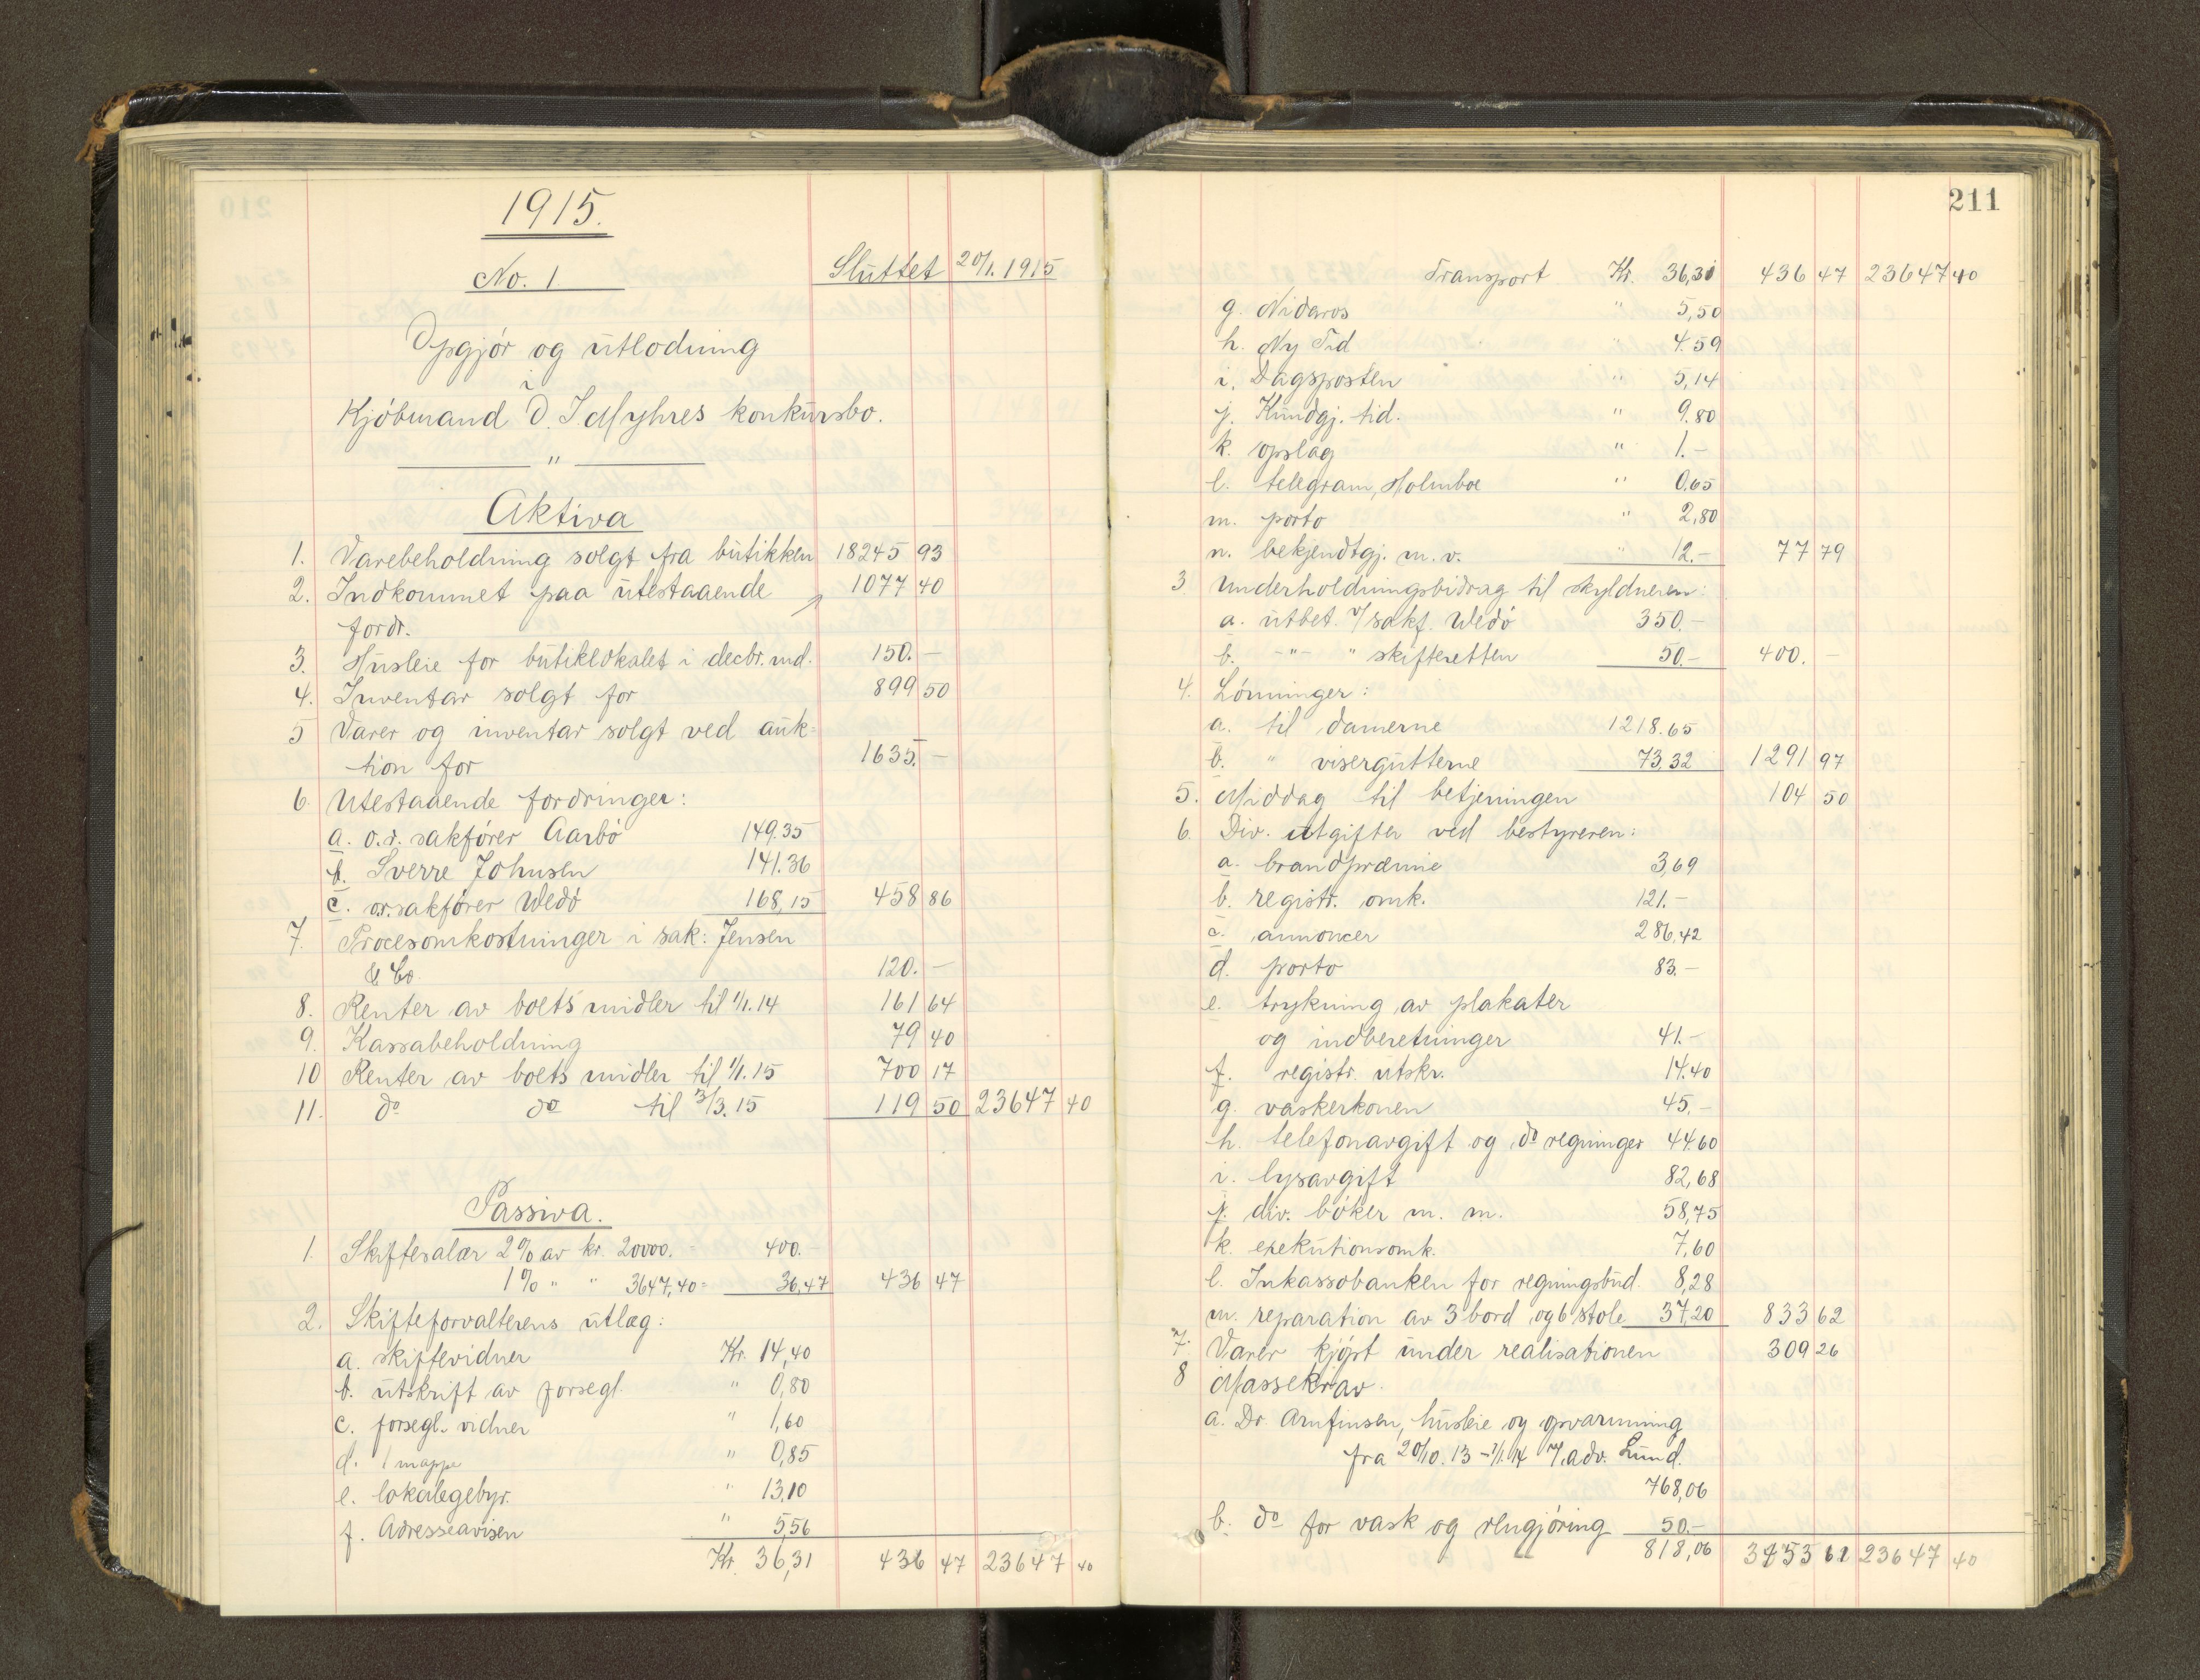 1915.
No. 1 Sluttet 20/1. 1915
Opgjör og utlodning
i
Kjöbmand O. J. Myhres konkursbo.
"
Aktiva
1. Varebeholdning solgt fra butikken 18245 93
2. Indkommet paa utestaaende 1077 40
fordr.
3. Husleie for butiklokalet i decbr. md. 150. —
4. Inventar solgt for 899 50
5 Varer og inventar solgt ved auk-
tion for 1635. —
6. Utestaaende fordringer:
a. o.r. sakförer Aarbö 149.35
b. Sverre Johnsen 141.36
c. o.r. sakförer Wedö 168,15 458 86
7. Procesomkostninger i sak: Jensen
& Co. 120. —
8. Renter av boets midler til 1/1. 14 161 64
9. Kassabeholdning 79 40
10 Renter av boets midler til 1/1. 15 700 17
11. do do til 3/3. 15 119 50 23647 40
Passiva.
1. Skiftesalær 2% av kr. 20000. - 400. -
1% " " 3647,40 = 36,47 436 47
2. Skifteforvalterens utlæg:
a. skiftevidner Kr. 14,40
b. utskrift av forsegl. " 0,80
c. forsegl. vidner " 1,60
d. 1 mappe " 0,85
e. lokalegebyr. " 13,10
f. Adresseavisen " 5,56
Kr. 36,31 436 47 23647 40
211
Transport Kr. 36,31 436 47 23647 40
g. Nidaros " 5,50
h. Ny Tid " 4.59
i. Dagsposten " 5,14
j. Kundgj. tid. " 9.80
k. opslag " 1. -
l. telegram, Holmboe " 0,65
m. porto " 2,80
n. bekjendtgj. m. v. " 12. - 77 79
3 Underholdningsbidrag til skyldneren:
a. utbet. v/ sakf. Wedö 350. -
b. - " - " skifteretten 50. - 400. —
4. Lönninger:
a. til damerne 1218.65
b. " visergutterne 73,32 1291 97
5. Middag til betjeningen 104 50
6. Div. utgifter ved bestyreren:
a. brandpræmie 3,69
b. registr. omk. 121. -
c. annoncer 286,42
d. porto 83. -
e. trykning av plakater
og indberetninger 41. -
f. registr. utskr. 14.40
g. vaskerkonen 45. -
h. telefonavgift og do regninger 44.60
i. lysavgift 82,68
j. div. böker m. m. 58,75
k. exekutionsomk. 7,60
l. Inkassobanken for regningsbud. 8,28
m. reparation av 3 bord og 6 stole 37,20 833 62
7. Varer kjöpt under realisationen 309 26
8 Massekrav.
a. Dr. Arnfinsen, husleie og opvarmning
fra 20/10. 13 - 1/1. 14 v/ adv. Lund.
768,06
b. do for vask og rengjöring 50. -
818,06 3453 61 23647 40